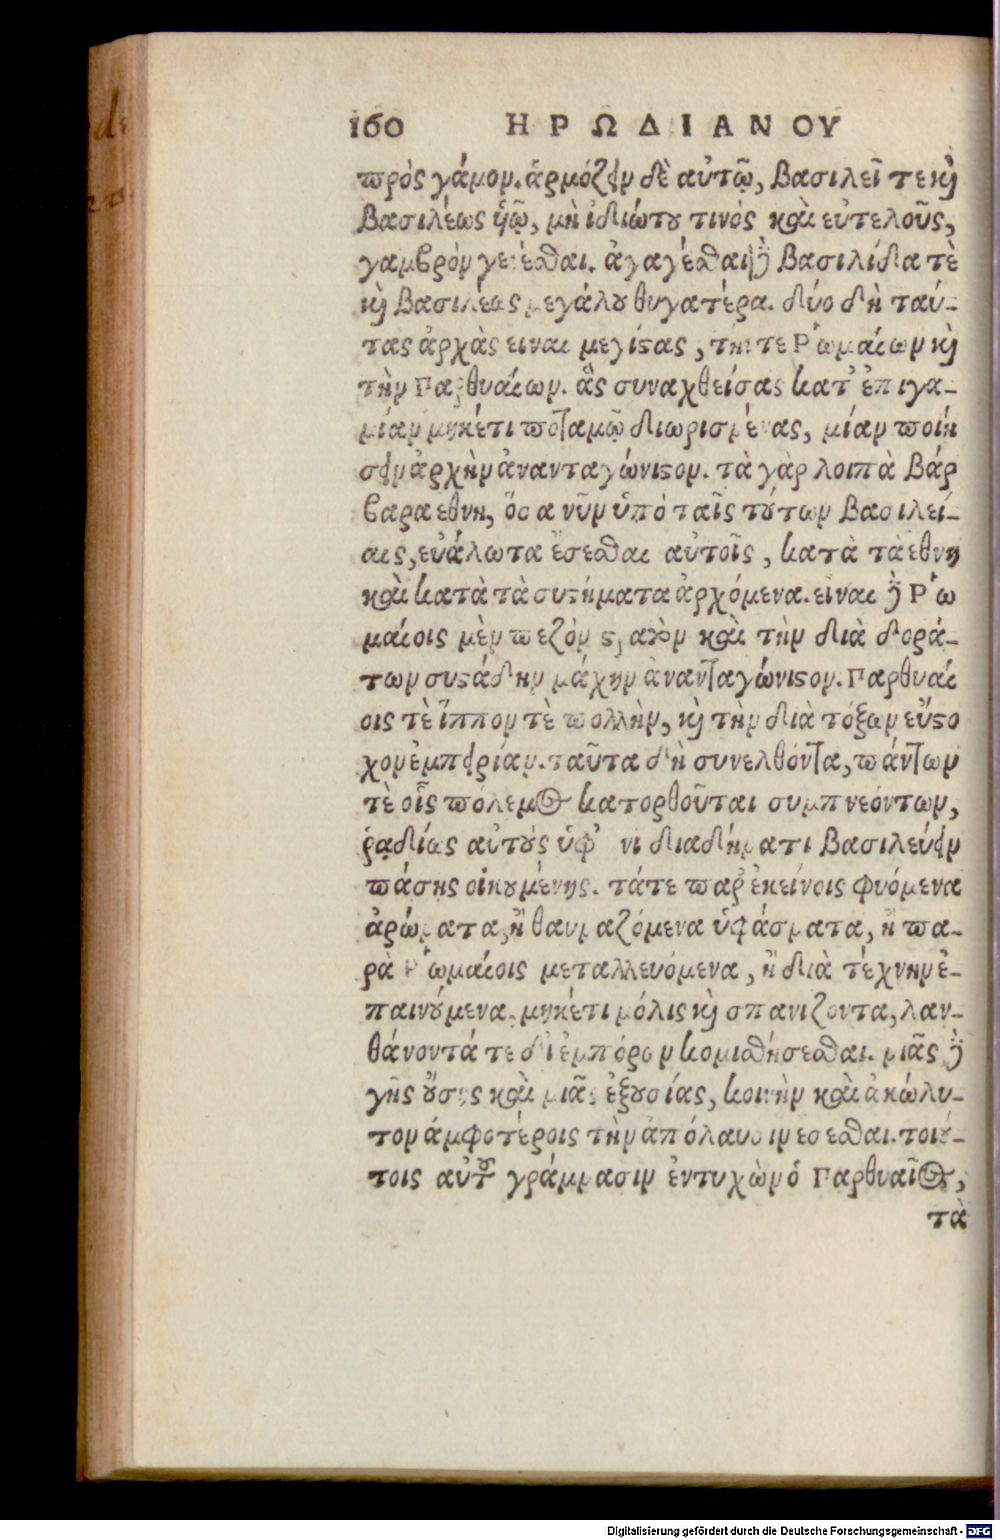 160 ΗΡΩΔΙΑΝΟΥ
πρὸς γάμον. ἁρμόζειν δὲ αὐτῷ, βασιλεῖ τε καὶ
βασιλέως ὑῷ, μὴ ἰδιώτου τινός καὶ εὐτελοῦς,
γαμβρὸν γενέσθαι. ἀγαγέσθαι δὲ βασιλίδα τὲ
καὶ βασιλέως μεγάλου θυγατέρα. δύο δὴ ταύ-
τας ἀρχὰς ειναι μεγίστας, τήν τε Ῥωμαίων καὶ
τὴν Παρθυαίων. ἃς συναχθείσας κατ᾽ ἐπιγα-
μίαν μηκέτι ποταμῷ διωρισμένας, μίαν ποιή
σειν ἀρχὴν ἀνανταγώνιστον. τὰ γὰρ λοιπὰ βάρ
βαρα εθνη, ὅσα νῦν ὑπό ταῖς τούτων βασιλεί-
αις, εὐάλωτα ἔσεσθαι αὐτοῖς, κατὰ τὰ εθνη
καὶ κατὰ τὰ συστήματα ἀρχόμενα. εἶναι δὲ Ῥω
μαίοις μὲν πεζὸν στρατὸν καὶ τὴν διὰ δορά-
των συστάδην μάχην ἀνανταγώνιστον. Παρθυαί
οις τὲ ἵππον τὲ πολλὴν, καὶ τὴν διὰ τόξων εὔστο
χον ἐμπειρίαν. ταῦτα δὴ συνελθόντα, πάντων
τὲ οἷς πόλεμος κατορθοῦται συμπνεόντων,
ῥᾳδίως αὐτοὺς ὑφ᾽ νὶ διαδήματι βασιλεύειν
πάσης οἰκουμένης. τάτε παρ᾽ ἐκείνοις φυόμενα
ἀρώματα, ἢ θαυμαζόμενα ὑφάσματα, ἢ πα-
ρὰ Ῥωμαίοις μεταλλευόμενα, ἢ διὰ τέχνην ἐ-
παινούμενα, μηκέτι μόλις καὶ σπανιζοντα, λαν-
θάνοντά τε δι᾽ ἐμπόρων κομισθήσεσθαι. μιᾶς δὲ
γῆς οὔσης καὶ μιᾶς ἐξουσίας, κοινὴν καὶ ἀκώλυ-
τον ἀμφοτέροις τὴν ἀπόλαυσιν εσεσθαι. τοιού-
τοις αὐτοῦ γράμμασιν ἐντυχὼν ὁ Παρθυαῖος,
τὰ
Digitalisierung gefördert durch die Deutsche Forschungsgemeinschaft - DFG